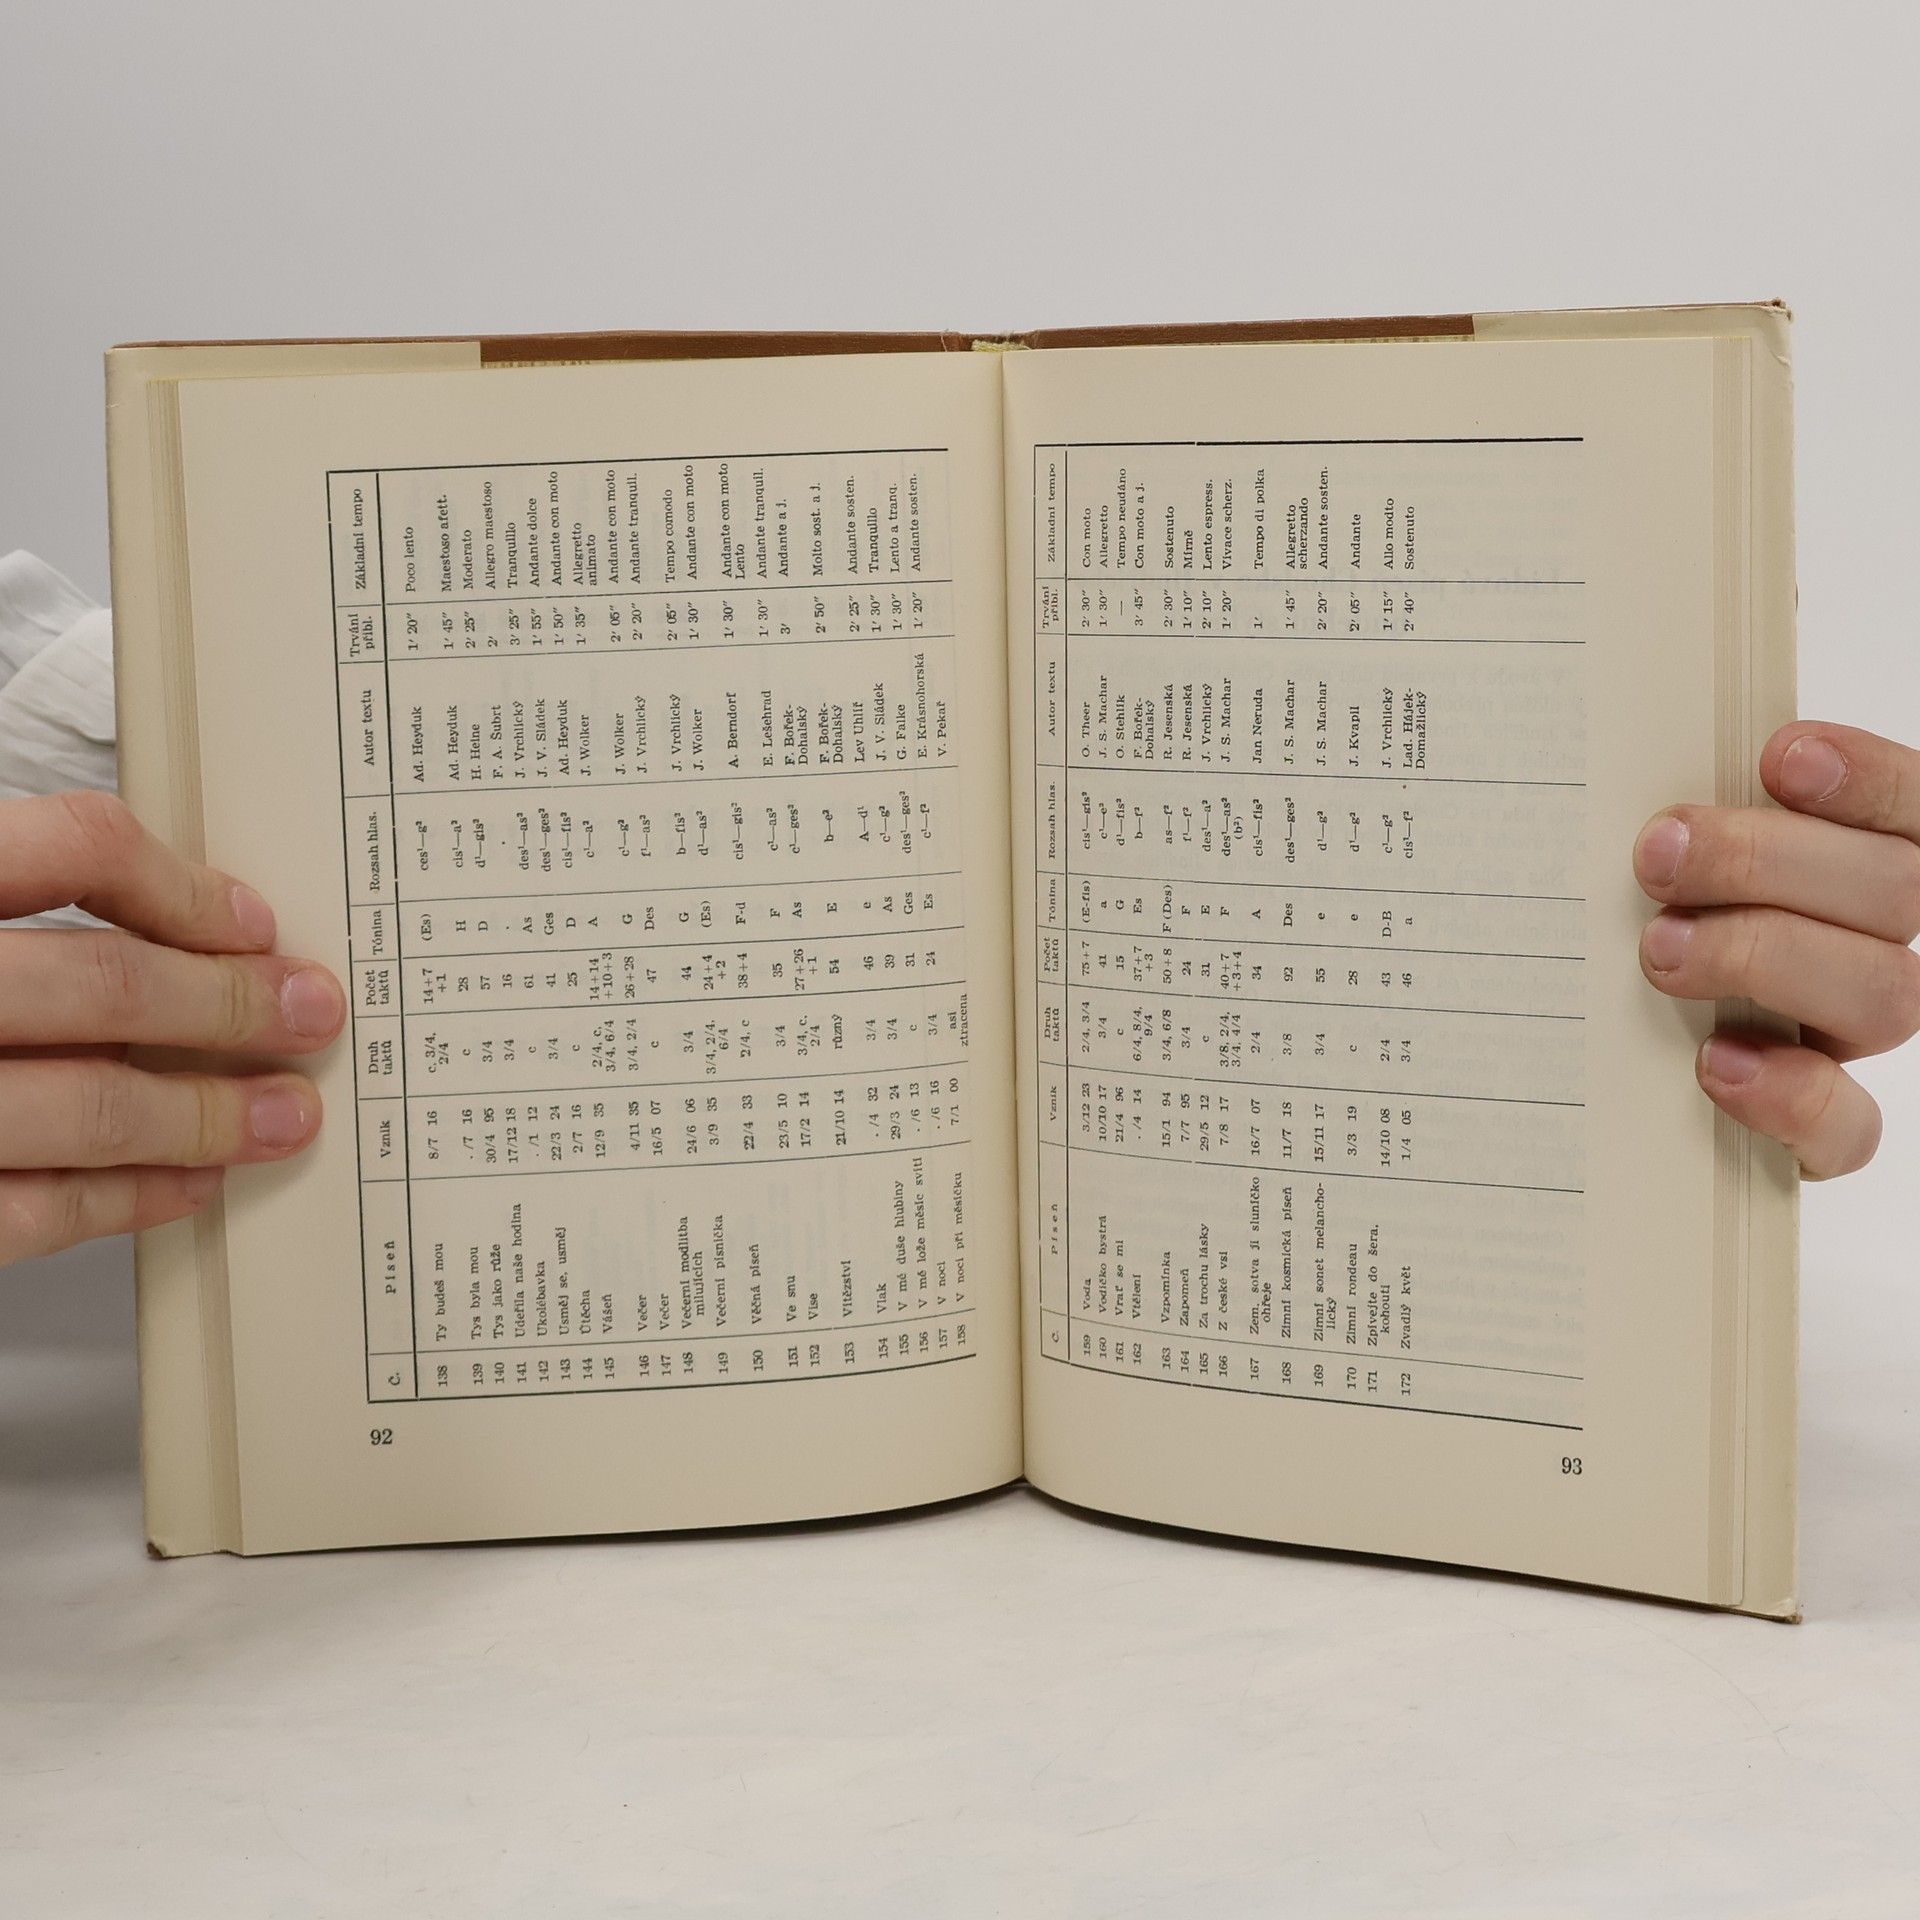 Č. Píseň Vznik Druh taktů Počet taktů Tónina Rozsah hlas. Autor textu Trvání přibl. Základní tempo
138 Ty budeš mou 8/7 16 c, 3/4, 2/4 14+7 +1 (Es) ces¹—g² Ad. Heyduk 1′ 20″ Poco lento
139 Tys byla mou . /7 16 c 28 H cis¹—a² Ad. Heyduk 1′ 45″ Maestoso afett.
140 Tys jako růže 30/4 95 3/4 57 D d¹—gis² H. Heine 2′ 25″ Moderato
141 Udeřila naše hodina 17/12 18 3/4 16 . . F. A. Šubrt 2′ Allegro maestoso
142 Ukolébavka . /1 12 c 61 As des¹—as² J. Vrchlický 3′ 25″ Tranquillo
143 Usměj se, usměj 22/3 24 3/4 41 Ges des¹—ges² J. V. Sládek 1′ 55″ Andante dolce
144 Útěcha 2/7 16 c 25 D cis¹—fis² Ad. Heyduk 1′ 50″ Andante con moto
145 Vášeň 12/9 35 2/4, c, 3/4, 6/4 14+14 +10+3 A c¹—a² J. Wolker 1′ 35″ Allegretto animato
146 Večer 4/11 35 3/4, 2/4 26+28 G c¹—g² J. Wolker 2′ 05″ Andante con moto
147 Večer 16/5 07 c 47 Des f¹—as² J. Vrchlický 2′ 20″ Andante tranquil.
148 Večerní modlitba milujících 24/6 06 3/4 44 G b—fis² J. Vrchlický 2′ 05″ Tempo comodo
149 Večerní písnička 3/9 35 3/4, 2/4, 6/4 24+4 +2 (Es) d¹—as² J. Wolker 1′ 30″ Andante con moto
150 Věčná píseň 22/4 33 2/4, c 38+4 F-d cis¹—gis² A. Berndorf 1′ 30″ Andante con moto Lento
151 Ve snu 23/5 10 3/4 35 F c¹—as² E. Lešehrad 1′ 30″ Andante tranquil.
152 Vise 17/2 14 3/4, c, 2/4 27+26 +1 As c¹—ges² F. Bořek-Dohalský 3′ Andante a j.
153 Vítězství 21/10 14 různý 54 E b—e² F. Bořek-Dohalský 2′ 50″ Molto sost. a j.
154 Vlak . /4 32 3/4 46 e A—d¹ Lev Uhlíř 2′ 25″ Andante sosten.
155 V mé duše hlubiny 29/3 24 3/4 39 As c¹—g² J. V. Sládek 1′ 30″ Tranquillo
156 V mé lože měsíc svítí . /6 13 c 31 Ges des¹—ges² G. Falke 1′ 30″ Lento a tranq.
157 V noci . /6 16 3/4 24 Es c¹—f² E. Krásnohorská 1′ 20″ Andante sosten.
158 V noci při měsíčku 7/1 00 asi ztracena V. Pekař
92
Č. Píseň Vznik Druh taktů Počet taktů Tónina Rozsah hlas. Autor textu Trvání přibl. Základní tempo
159 Voda 3/12 23 2/4, 3/4 75+7 (E-fis) cis¹—gis² O. Theer 2′ 30″ Con moto
160 Vodičko bystrá 10/10 17 3/4 41 a c¹—e² J. S. Machar 1′ 30″ Allegretto
161 Vrať se mi 21/4 96 c 15 G d¹—fis² O. Stehlík — Tempo neudáno
162 Vtělení . /4 14 6/4, 8/4, 9/4 37+7 +3 Es b—f² F. Bořek-Dohalský 3′ 45″ Con moto a j.
163 Vzpomínka 15/1 94 3/4, 6/8 50+8 F (Des) as—f² R. Jesenská 2′ 30″ Sostenuto
164 Zapomeň 7/7 95 3/4 24 F f¹—f² R. Jesenská 1′ 10″ Mírně
165 Za trochu lásky 29/5 12 c 31 E des¹—a² J. Vrchlický 2′ 10″ Lento espress.
166 Z české vsi 7/8 17 3/8, 2/4, 3/4, 4/4 40+7 +3+4 F des¹—as² (b²) J. S. Machar 1′ 20″ Vivace scherz.
167 Zem, sotva ji sluníčko ohřeje 16/7 07 2/4 34 A cis¹—fis² Jan Neruda 1′ Tempo di polka
168 Zimní kosmická píseň 11/7 18 3/8 92 Des des¹—ges² J. S. Machar 1′ 45″ Allegretto scherzando
169 Zimní sonet melancholický 15/11 17 3/4 55 e d¹—g² J. S. Machar 2′ 20″ Andante sosten.
170 Zimní rondeau 3/3 19 c 28 e d¹—g² J. Kvapil 2′ 05″ Andante
171 Zpívejte do šera, kohouti 14/10 08 2/4 43 D-B c¹—g² J. Vrchlický 1′ 15″ Allo modto
172 Zvadlý květ 1/4 05 3/4 46 a cis¹—f² Lad. Hájek-Domažlický 2′ 40″ Sostenuto
93